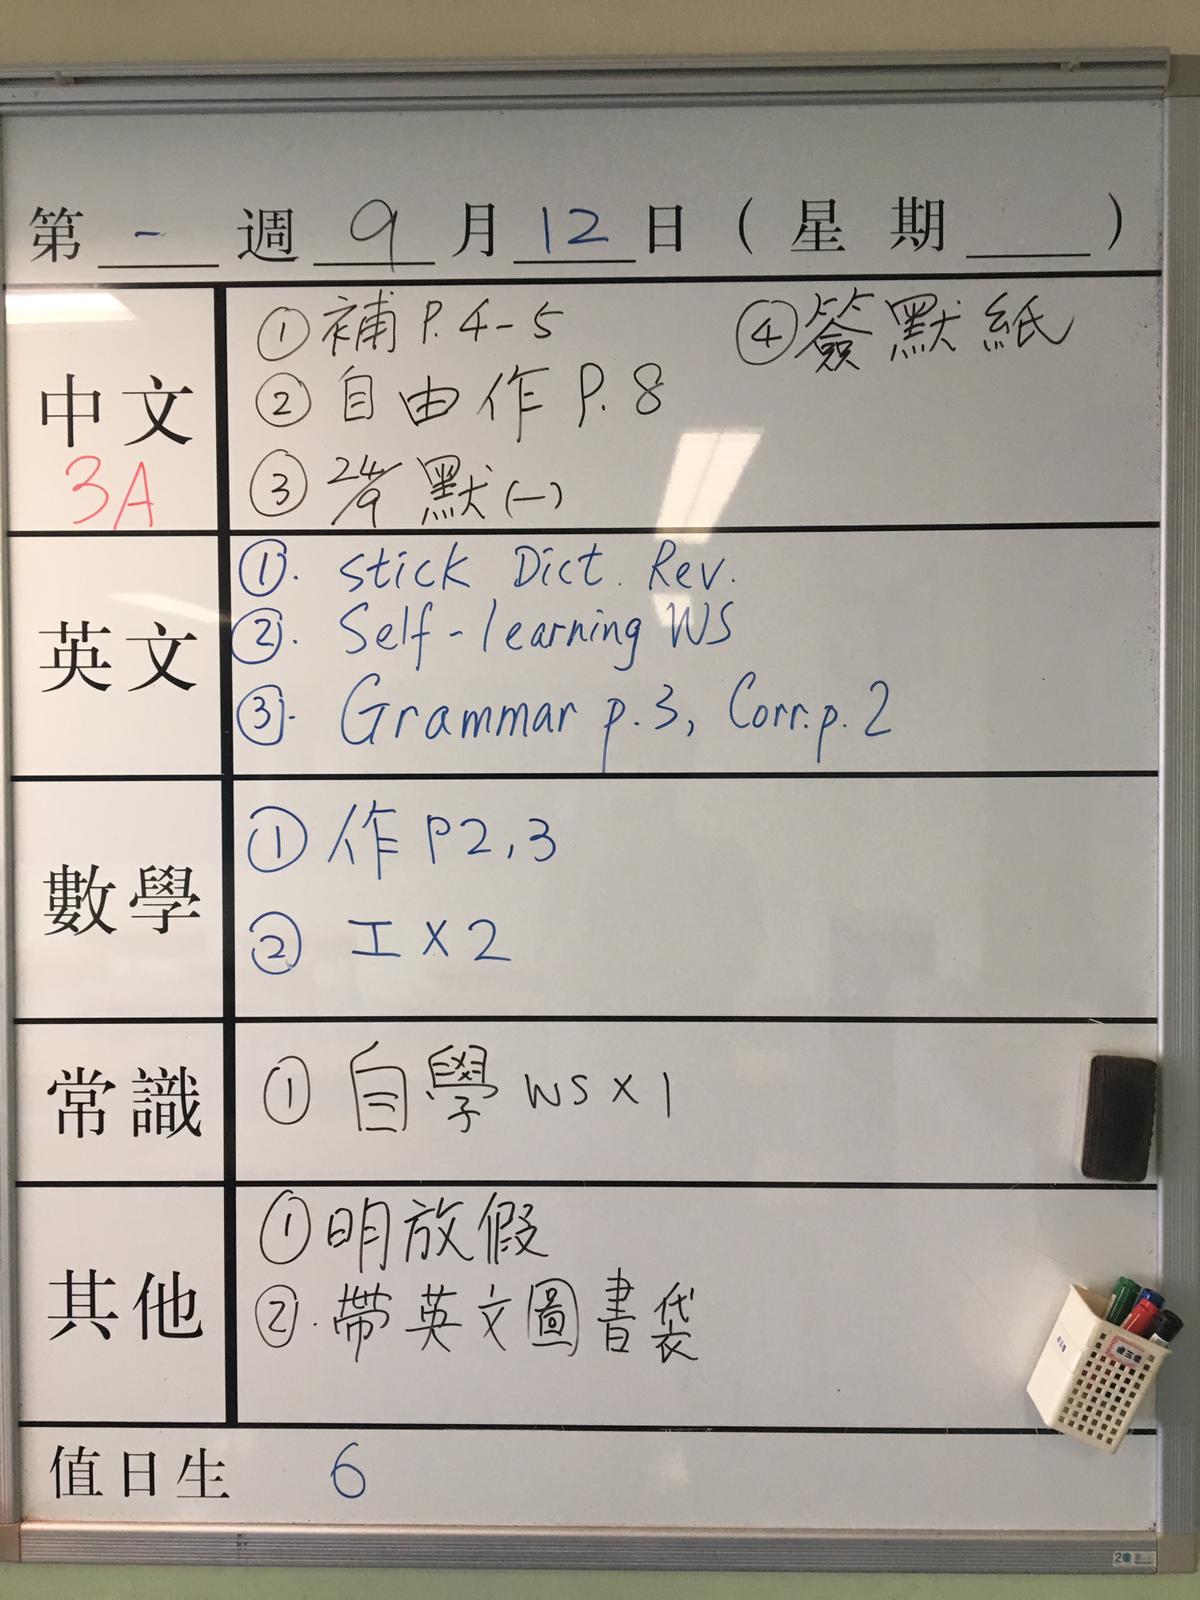 第 一 週 9 月 12 日 ( 星 期 )
中文
3A
① 補 P.4-5
④ 簽默紙
② 自由作 P.8
③ 24/9 默(一)
英文
①. stick Dict. Rev.
②. Self-learning WS
③. Grammar p.3, Corr.p.2
數學
① 作 P2,3
② 工 X 2
常識
① 自學 WS X 1
其他
① 明放假
②. 帶英文圖書袋
值日生 6